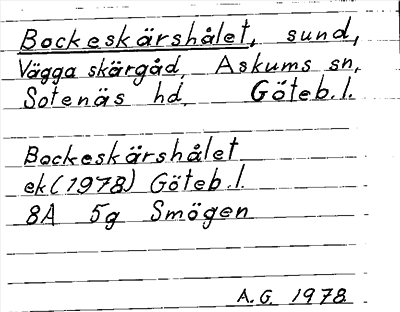 Bockeskärshålet, sund,
Vägga skärgåd, Askums sn,
Sotenäs hd, Göteb. l.
Bockeskärshålet
ek (1978) Göteb. l.
8A 5g Smögen
A.G. 1978